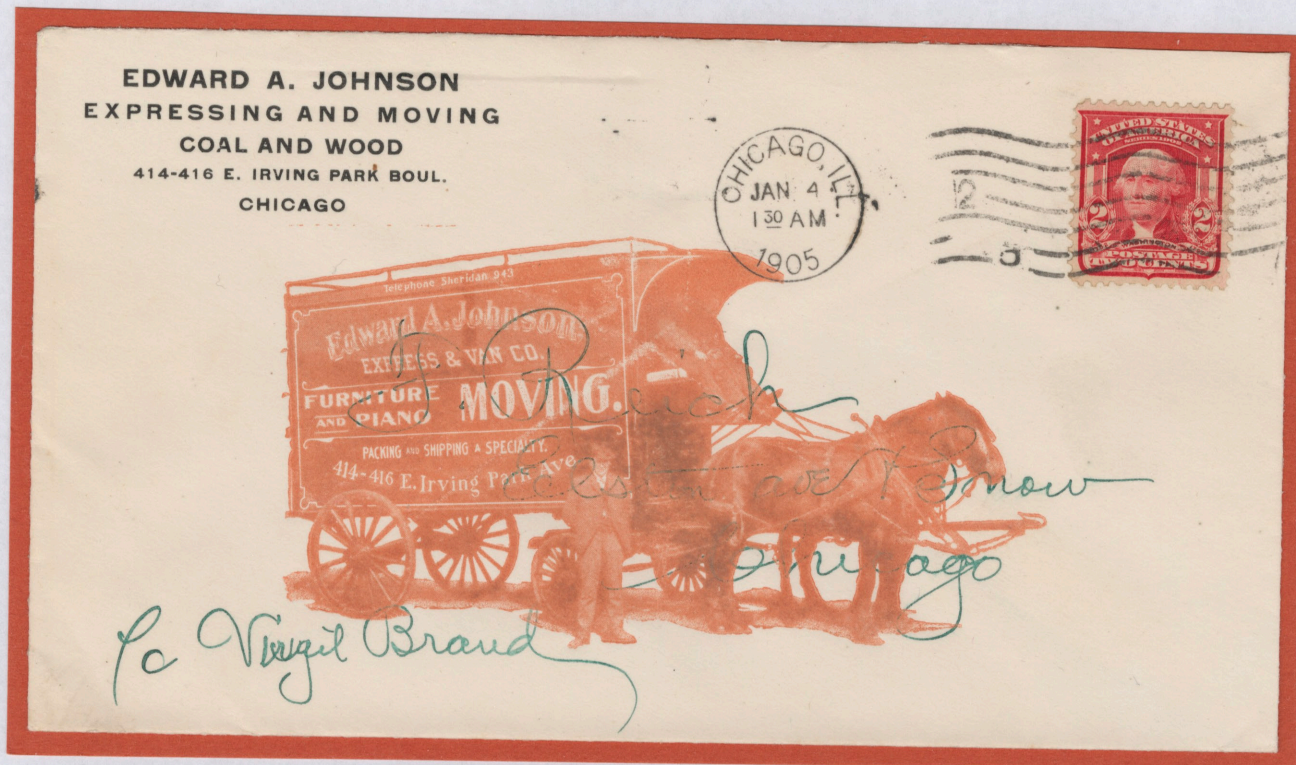 EDWARD A. JOHNSON
EXPRESSING AND MOVING
COAL AND WOOD
414-416 E. IRVING PARK BOUL.
CHICAGO
CHICAGO, ILL.
JAN 4
1 30 AM
1905
UNITED STATES
OF AMERICA
SERIES 1902
2 2
POSTAGE
TWO CENTS
Telephone Sheridan 943
Edward A. Johnson
EXPRESS & VAN CO.
FURNITURE
AND PIANO MOVING.
PACKING AND SHIPPING A SPECIALTY.
414-416 E. Irving Park Ave
F. Reich
ave &
Chicago
c Virgil Brand